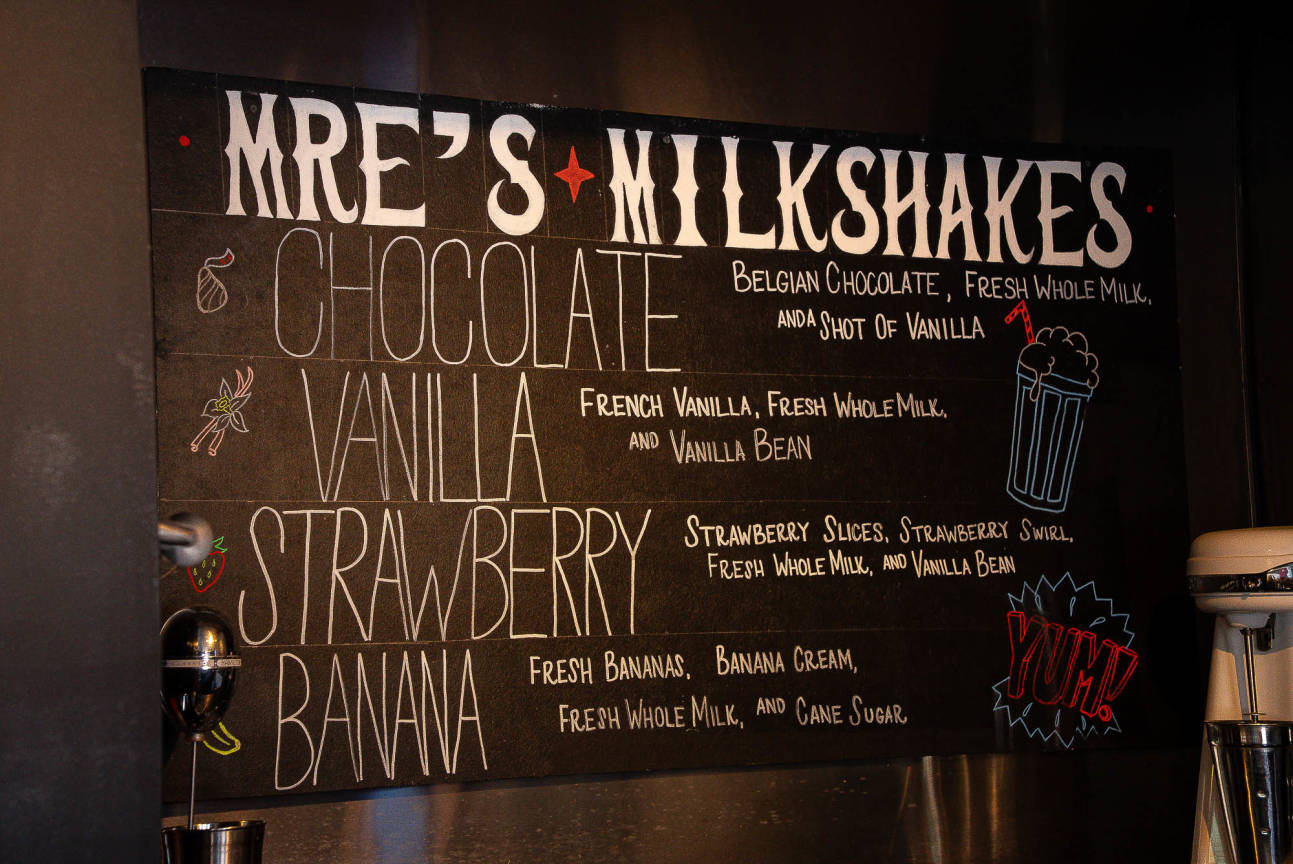 MRE'S MILKSHAKES
CHOCOLATE
BELGIAN CHOCOLATE, FRESH WHOLE MILK,
AND A SHOT OF VANILLA
VANILLA
FRENCH VANILLA, FRESH WHOLE MILK,
AND VANILLA BEAN
STRAWBERRY
STRAWBERRY SLICES, STRAWBERRY SWIRL,
FRESH WHOLE MILK, AND VANILLA BEAN
BANANA
FRESH BANANAS, BANANA CREAM,
FRESH WHOLE MILK, AND CANE SUGAR
YUM!